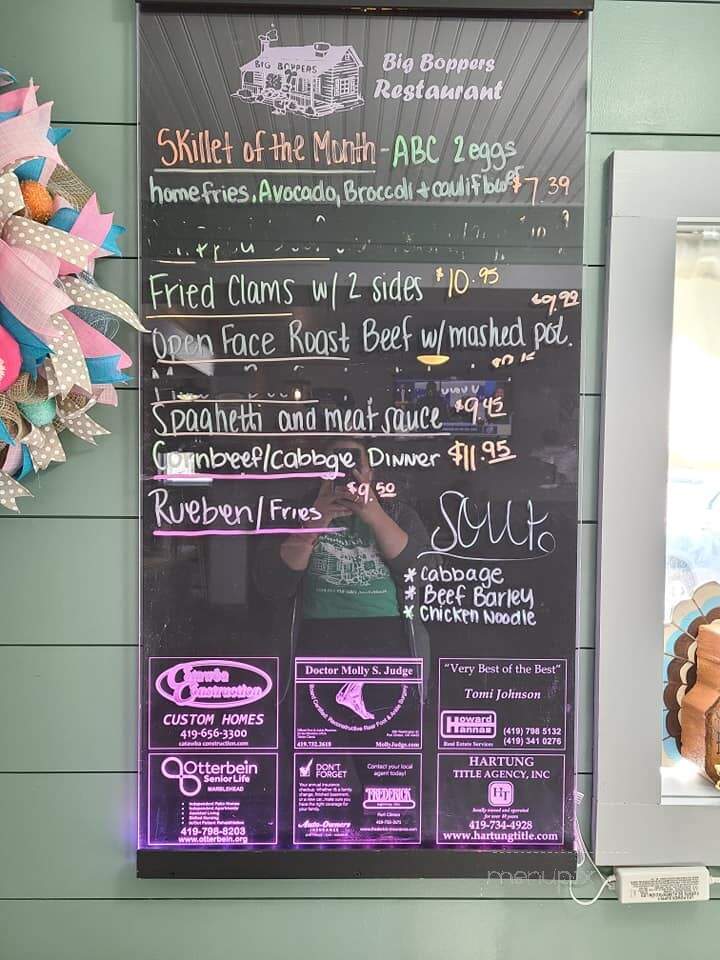 BIG BOPPERS
Big Boppers
Restaurant
Skillet of the Month - ABC 2 eggs
homefries, Avocado, Broccoli + cauliflower $7.39
Fried Clams w/ 2 sides $10.95
$9.99
Open Face Roast Beef w/mashed pot.
Spaghetti and meat sauce $9.45
Cornbeef/Cabbge Dinner $11.95
Rueben/Fries $9.50
Soup
* Cabbage
* Beef Barley
* Chicken Noodle
Catawba
Construction
CUSTOM HOMES
419-656-3300
catawba construction.com
Doctor Molly S. Judge
419.732.2619
MollyJudge.com
"Very Best of the Best"
Tomi Johnson
Howard
Hanna
Real Estate Services
(419) 798 5132
(419) 341 0276
Otterbein
SeniorLife
MARBLEHEAD
419-798-8203
www.otterbein.org
DON'T
FORGET
Contact your local
agent today!
FREDERICK
Auto-Owners
INSURANCE
HARTUNG
TITLE AGENCY, INC
HT
locally owned and operated
for over 40 years
419-734-4928
www.hartungtitle.com